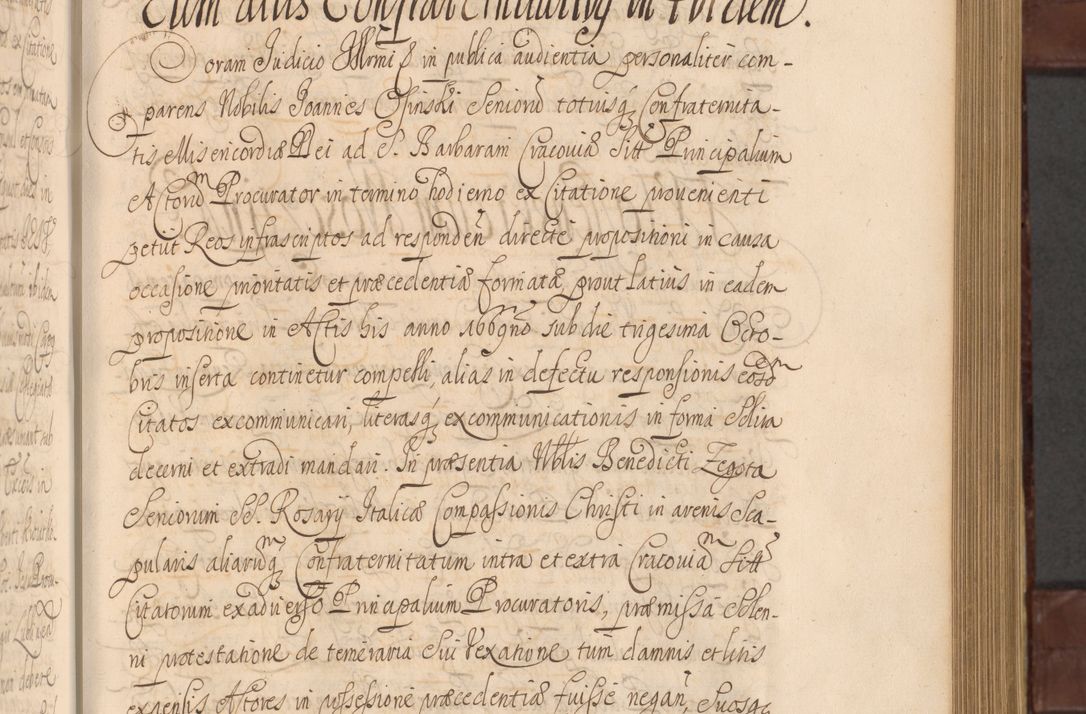 Cum aliis Confraternitatibus in fundem.
Coram Judicio Illrmi et in publica audientia personaliter com-
parens Nobilis Joannes Osinski Seniorũ totiusq Confraternita-
tis Misericordiæ Dei ad S. Barbaram Cracoviæ Sitt Principalium
Actorũ Procurator in termino hodierno ex Citatione provenienti
petiit Reos infrascriptos ad responden directe propositioni in causa
occasione prioritatis et præcedentiæ formatæ, prout latius in eadem
propositione in Actis his anno 166gno sub die trigesima Octo-
bris inserta continetur compelli, alias in defectu responsionis eosd
Citatos excommunicari, literasq excommunicationis in forma solita
decerni et extradi mandari. In præsentia Nblis Benedicti Zegota
Seniorum SS. Rosarij Italicæ Compassionis Christi in arenis Sca-
pularis aliarumq Confraternitatum intra et extra Cracoviam Sitt
Citatorum ex adverso Principalium Procuratoris, præmissa Solen-
ni protestatione de temeraria Sui Vexatione tum damnis et litis
expensis Actores in possessione præcedentiæ fuisse negan, Suosq